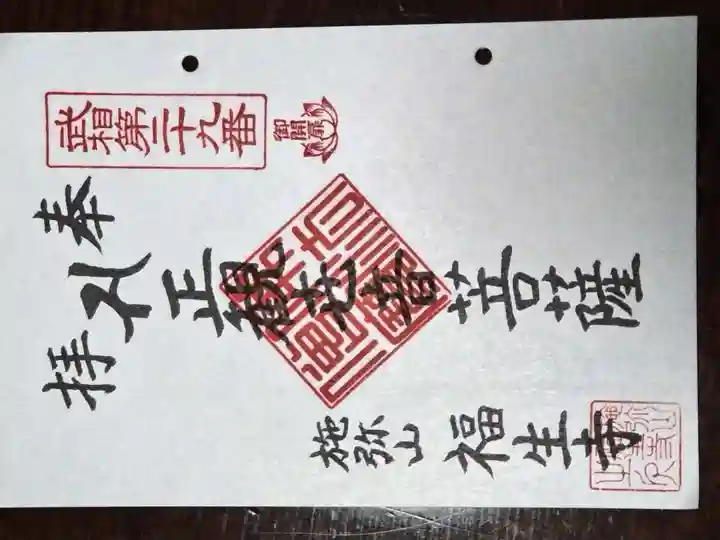 武相第二十九番
御開扉
奉拝
正観世音菩薩
施弥山
福生寺